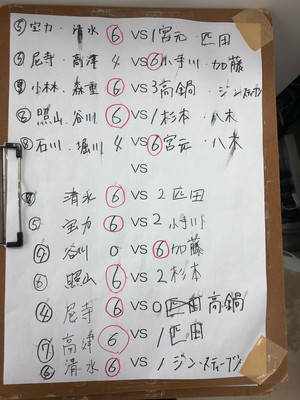 ⑤宝力・清水 ⑥ VS 1 宮元 匹田
尼寺・高津 4 VS ⑥ 小手川・加藤
小林・森重 ⑥ VS 3 高鍋・ジン
⑥照山・谷川 ⑥ VS 1 杉本・八木
⑧石川・堀川 4 VS ⑥ 宮元・八木
VS
清水 ⑥ VS 2 匹田
⑤宝力 ⑥ VS 2 小手川
谷川 0 VS ⑥ 加藤
⑥照山 ⑥ VS 2 杉本
④尼寺 ⑥ VS 0 高鍋
⑦高津 ⑥ VS 1 匹田
⑥清水 ⑥ VS 1 ジン・スティーブン